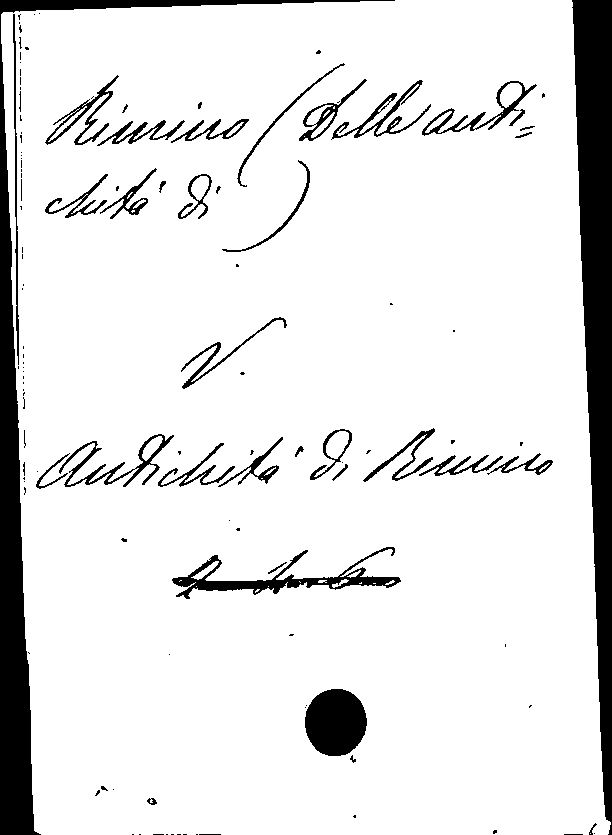 Rimino (Delle anti=
chità di)
V.
Antichità di Rimino